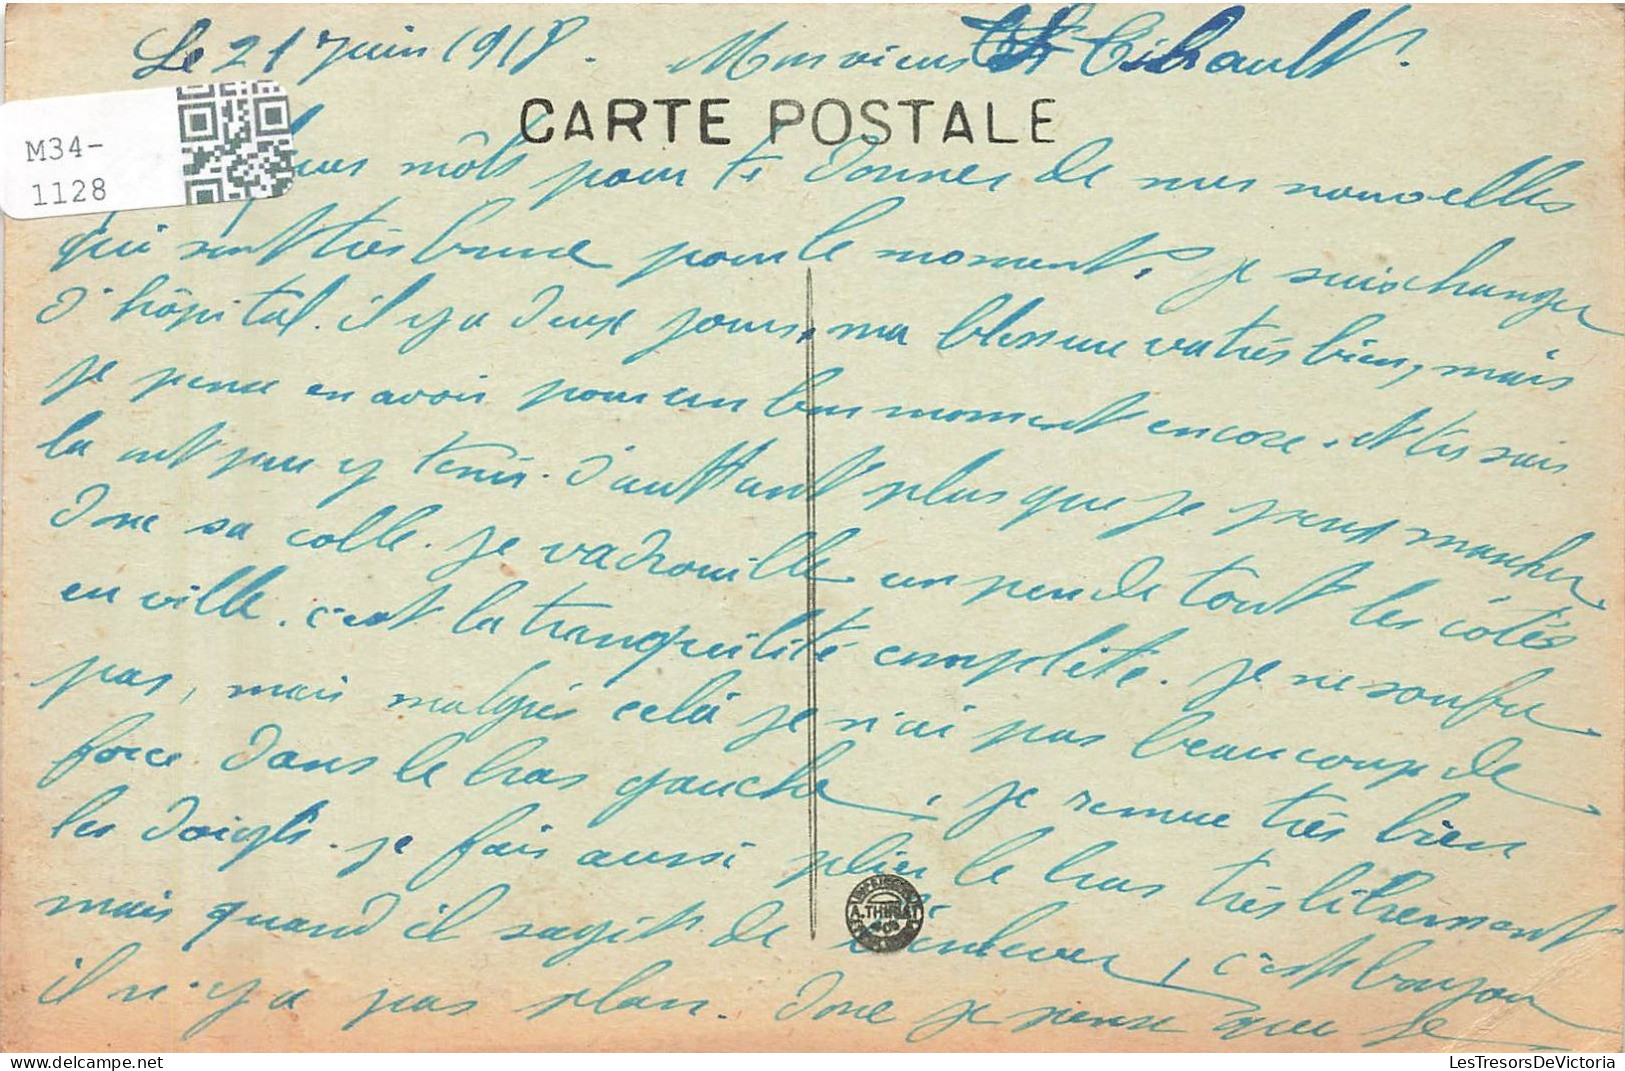 Le 21 Juin 1918. Mon vieux Thibault.
CARTE POSTALE
M34-
1128
mots pour te donner de mes nouvelles
qui sont très bonne pour le moment. Je suis changer
d'hôpital. il y a deux jours, ma blessure va très bien, mais
je pense en avoir pour un bon moment encore. et tu sais
la ont peu y tenir. d'auttant plus que je peux marcher
donc sa colle. je vadrouille un peu de tout les côtés
en ville. c'est la tranquilité complète. Je ne souffre
pas, mais malgrès celà je n'ai pas beaucoup de
force dans le bras gauche, je remue très bien
les doigts. je fais aussi plier le bras très librement
mais quand il sagit de c'est bonjour
il n'y a pas plan. donc je pense que je
A. THIRIAT
LesTresorsDeVictoria